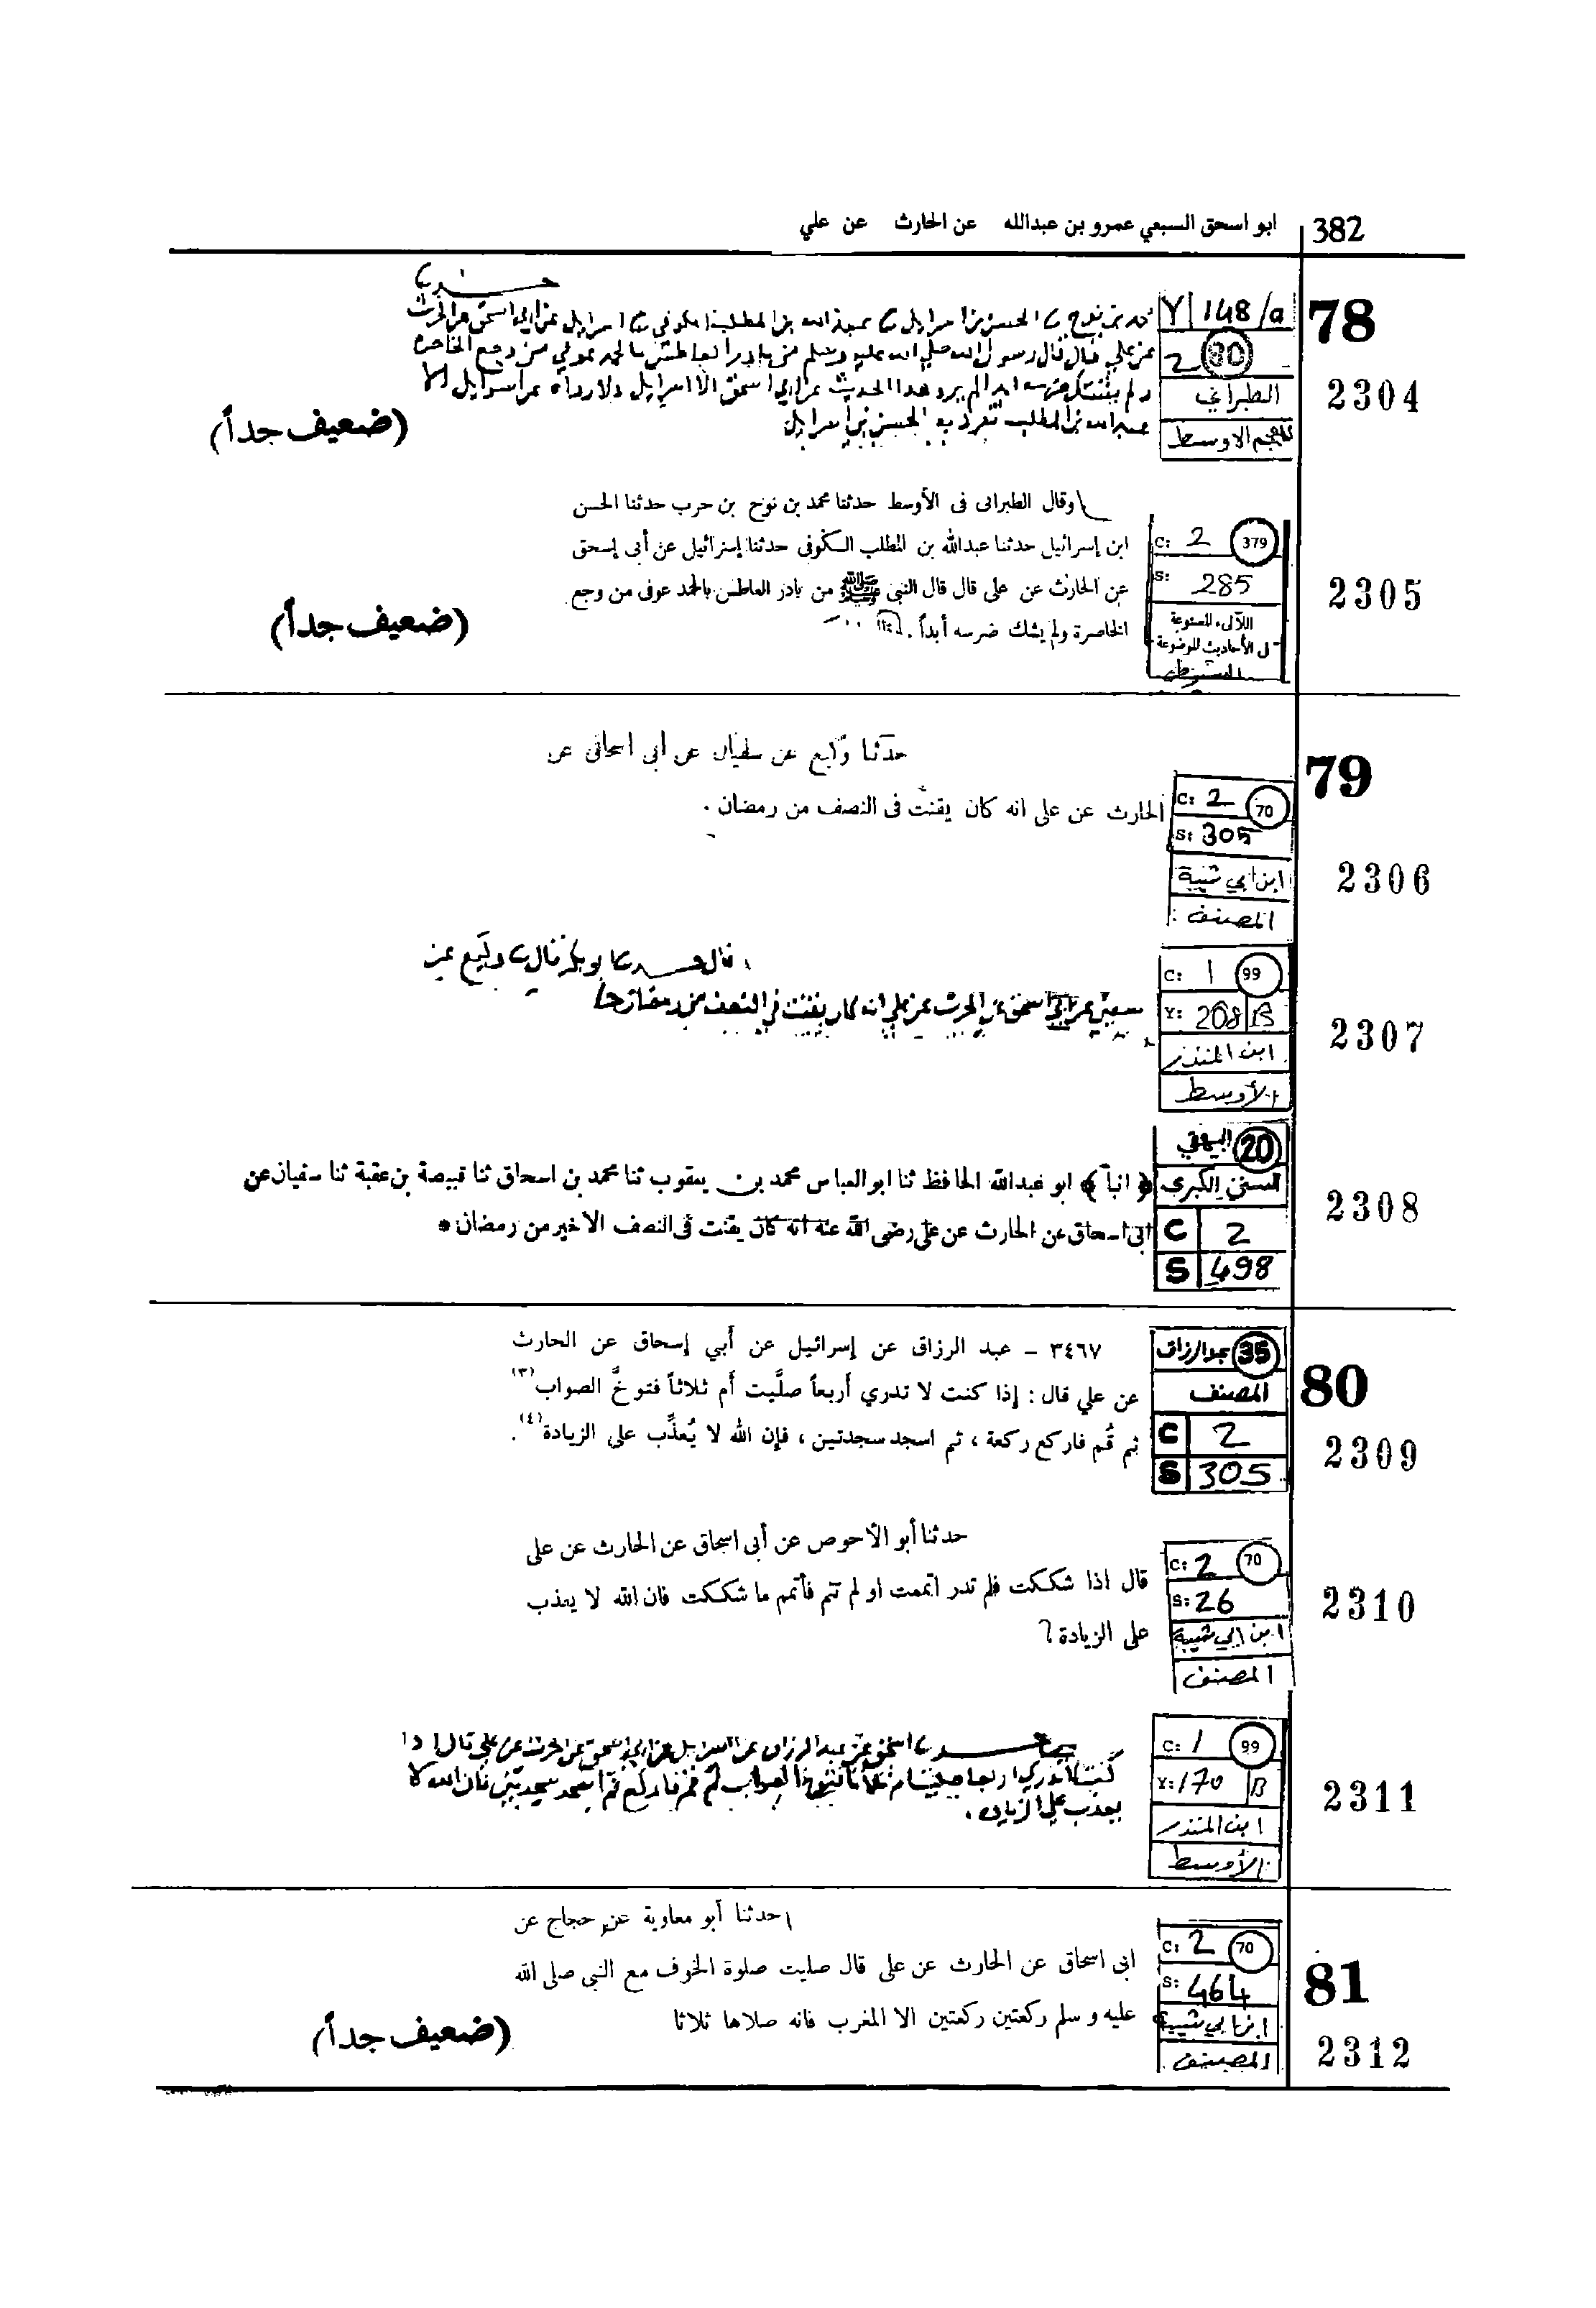 382 ابو اسحق السبعي عمرو بن عبدالله عن الحارث عن علي
78
2304
Y 148/a
2 80
الطبراني
المعجم الاوسط
حدثنا
محمد بن نوح نا الحسن بن اسرايل نا عبد الله بن المطلب الكوفي نا اسرايل عن ابي اسحق عن الحرث
عن علي قال قال رسول الله صلي الله عليه وسلم من بادر العاطس بالحمد عوفي من وجع الخاصره
ولم يشتك ضرسه ابدا لم يرو هذا الحديث عن ابي اسحق الا اسرايل ولا رواه عن اسرايل الا
عبد الله بن المطلب تفرد به الحسن بن اسرايل
(ضعيف جداً)
2305
C: 2 379
S: 285
اللآلىء المصنوعة
فى الأحاديث الموضوعة
السيوطي
وقال الطبرانى فى الأوسط حدثنا محمد بن نوح بن حرب حدثنا الحسن
ابن إسرائيل حدثنا عبدالله بن المطلب الكوفى حدثنا إسرائيل عن أبى إسحق
عن الحارث عن على قال قال النبى ﷺ من بادر العاطس بالحمد عوفى من وجع
الخاصرة ولم يشك ضرسه أبداً .
(ضعيف جداً)
79
2306
C: 2 70
S: 305
ابن ابي شيبة
المصنف
حدثنا وكيع عن سفيان عن ابى اسحاق عن
الحارث عن على انه كان يقنت فى النصف من رمضان .
2307
C: 1 99
Y: 208 B
ابن المنذر
الأوسط
قال حدثنا ابو بكر قال نا وكيع عن
سفين عن ابي اسحق عن الحرث عن علي انه كان يقنت في النصف من رمضان
2308
البيهقي 20
السنن الكبرى
C 2
S 498
﴿ انبأ ﴾ ابو عبدالله الحافظ ثنا ابو العباس محمد بن يعقوب ثنا محمد بن اسحاق ثنا قبيصة بن عقبة ثنا سفيان عن
ابى اسحاق عن الحارث عن على رضى الله عنه انه كان يقنت فى النصف الاخير من رمضان *
80
2309
عبدالرزاق 35
المصنف
C 2
S 305
٣٤٦٧ – عبد الرزاق عن إسرائيل عن أبي إسحاق عن الحارث
عن علي قال : إذا كنت لا تدري أربعاً صلَّيت أم ثلاثاً فتوخَّ الصواب(٣)
ثم قُم فاركع ركعة ، ثم اسجد سجدتين ، فإن الله لا يُعذِّب على الزيادة(٤) .
2310
C: 2 70
S: 26
ابن ابي شيبة
المصنف
حدثنا أبو الأحوص عن أبى اسحاق عن الحارث عن على
قال اذا شككت فلم تدر اتممت او لم تتم فأتمم ما شككت فان الله لا يعذب
على الزيادة ؟
2311
C: 1 99
Y: 170 B
ابن المنذر
الأوسط
حدثنا اسحق عن عبد الرزاق عن اسرايل عن ابي اسحق عن الحرث عن علي قال اذا
كنت لا تدري اربعا صليت ام ثلاثا فتوخ الصواب ثم قم فاركع ثم اسجد سجدتين فان الله لا
يعذب علي الزياده .
81
2312
C: 2 70
S: 464
ابن ابي شيبة
المصنف
حدثنا أبو معاوية عن حجاج عن
ابى اسحاق عن الحارث عن على قال صليت صلوة الخوف مع النبي صلى الله
عليه و سلم ركعتين ركعتين الا المغرب فانه صلاها ثلاثا
(ضعيف جداً)